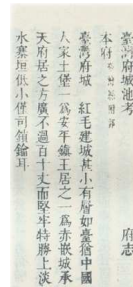 臺灣府城池考　府志
本府
臺灣府城　紅毛建城甚小有層如臺猶中國
人家土堡一爲安平鎮王居之一爲赤嵌城承
天府居之方廣不過百十丈而堅牢特勝上淡
水寨垣供小徑司鎖鑰耳